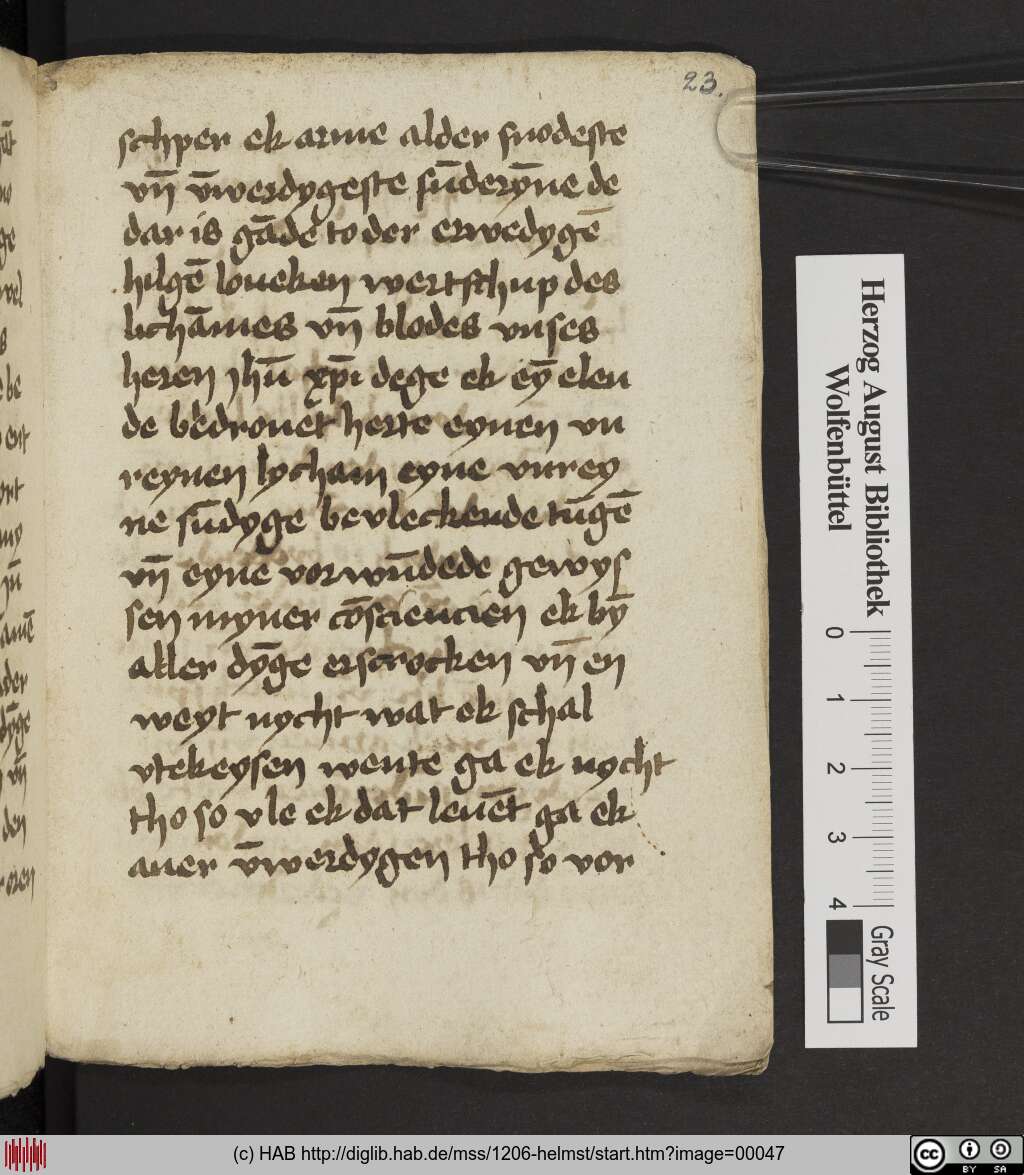 23.
schper ek arme alder snodeste
vn̄ v̄werdygeste sūderȳne de
dar is gāde to der erwedygē
hilgē loueken wertschup des
lichāmes vn̄ blodes vnses
heren jhū xp̄i dege ek eȳ elen
de bedrouet herte eynen vn
reynen lycham eyne vnrey
ne sūdyge bevleckende tūgē
vn̄ eyne vorwūdede gewys
sen myner cōsciencien ek bȳ
aller dȳge erscrocken vn̄ en
weyt nycht wat ek schal
vtekeysen wente ga ek nycht
tho so vle ek dat leuēt ga ek
auer v̄werdygen tho so vor
Herzog August Bibliothek
Wolfenbüttel
0 1 2 3 4
Gray Scale
(c) HAB http://diglib.hab.de/mss/1206-helmst/start.htm?image=00047
cc BY SA